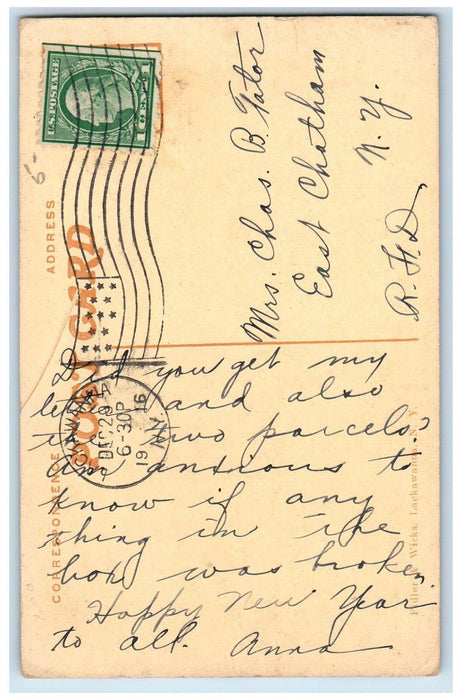 U.S. POSTAGE
1 CENT 1
6-
ADDRESS
POST CARD
CORRESPONDENCE
LACKAWANNA
DEC 29
6-30P
1916
N.Y.
Mrs. Chas. B. Tator
East Chatham
N. Y.
R. F. D.
Did you get my
letter and also
the two parcels?
Am anxious to
know if any
thing in the
box was broken
Happy New Year
to all. Anna
& Wicks, Lackawanna, N. Y.